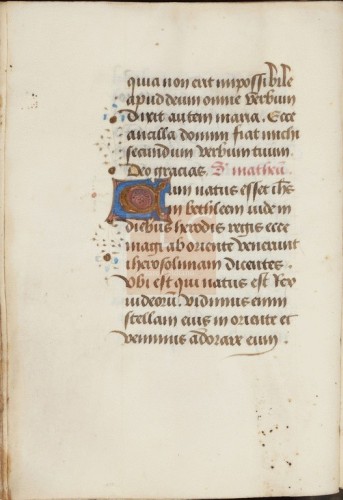 quia non erit impossibile
apud deum omne verbum
Dixit autem maria. Ecce
ancilla domini fiat michi
secundum verbum tuum.
Deo gracias. S. matheū
Cum natus esset ihs
in bethleem iude in
diebus herodis regis ecce
magi ab oriente venerunt
iherosolimam dicentes.
Vbi est qui natus est Rex
iudeorū. vidimus enim
stellam eius in oriente et
venimus adorare eum.